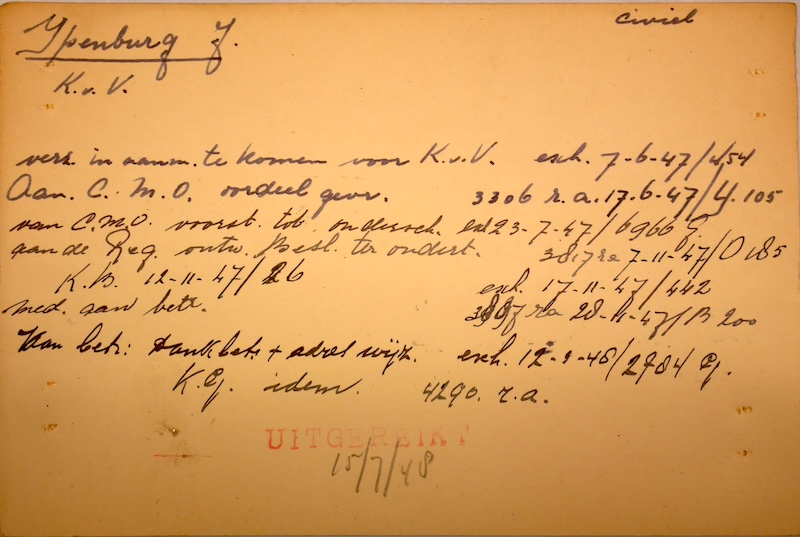 civiel
Ypenburg J.
K.v.V.
verz. in aanm. te komen voor K.v.V. exh. 7-6-47/454
Aan C.M.O. oordeel gevr. 3306 r.a. 17-6-47/Y.105
van C.M.O. voorst. tot ondersch. exh 23-7-47/6966 G.
aan de Reg. ontw. Besl. ter ondert. 3817 ra 7-11-47/O 185
K.B. 12-11-47/26 exh. 17-11-47/442
med. aan betr. ra 28-11-47/B 200
Van betr: Dankbetr + adreswijz. exh. 12-3-48/2784 G.
K.G. idem. 4290. r.a.
UITGEREIKT
15/7/48